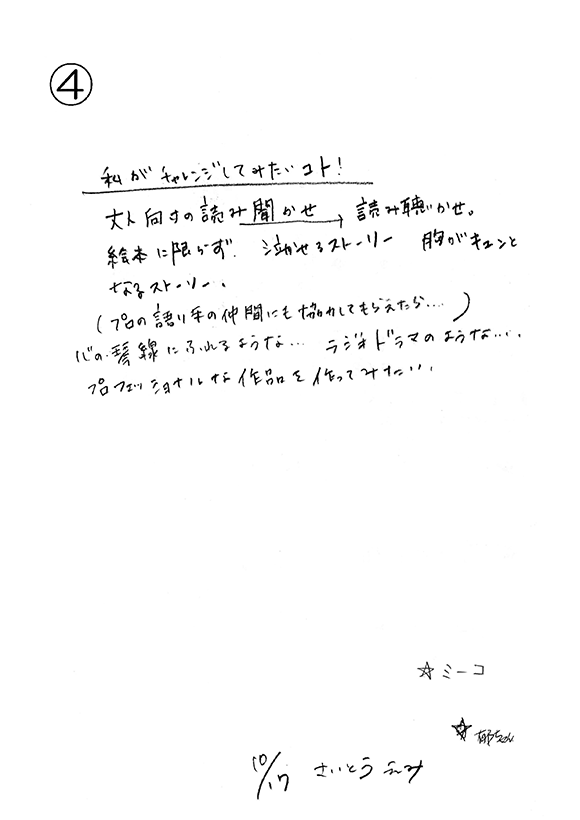 ④
私がチャレンジしてみたいコト!
大人向けの読み聞かせ → 読み聴かせ。
絵本に限らず. 泣かせるストーリー 胸がキュンと
なるストーリー、
(プロの語り手の仲間にも協力してもらえたら....)
心の琴線にふれるような... ラジオドラマのような...、
プロフェッショナルな作品を作ってみたい.
☆ミーコ
☆郁ちゃん
10/17 さいとう えみ